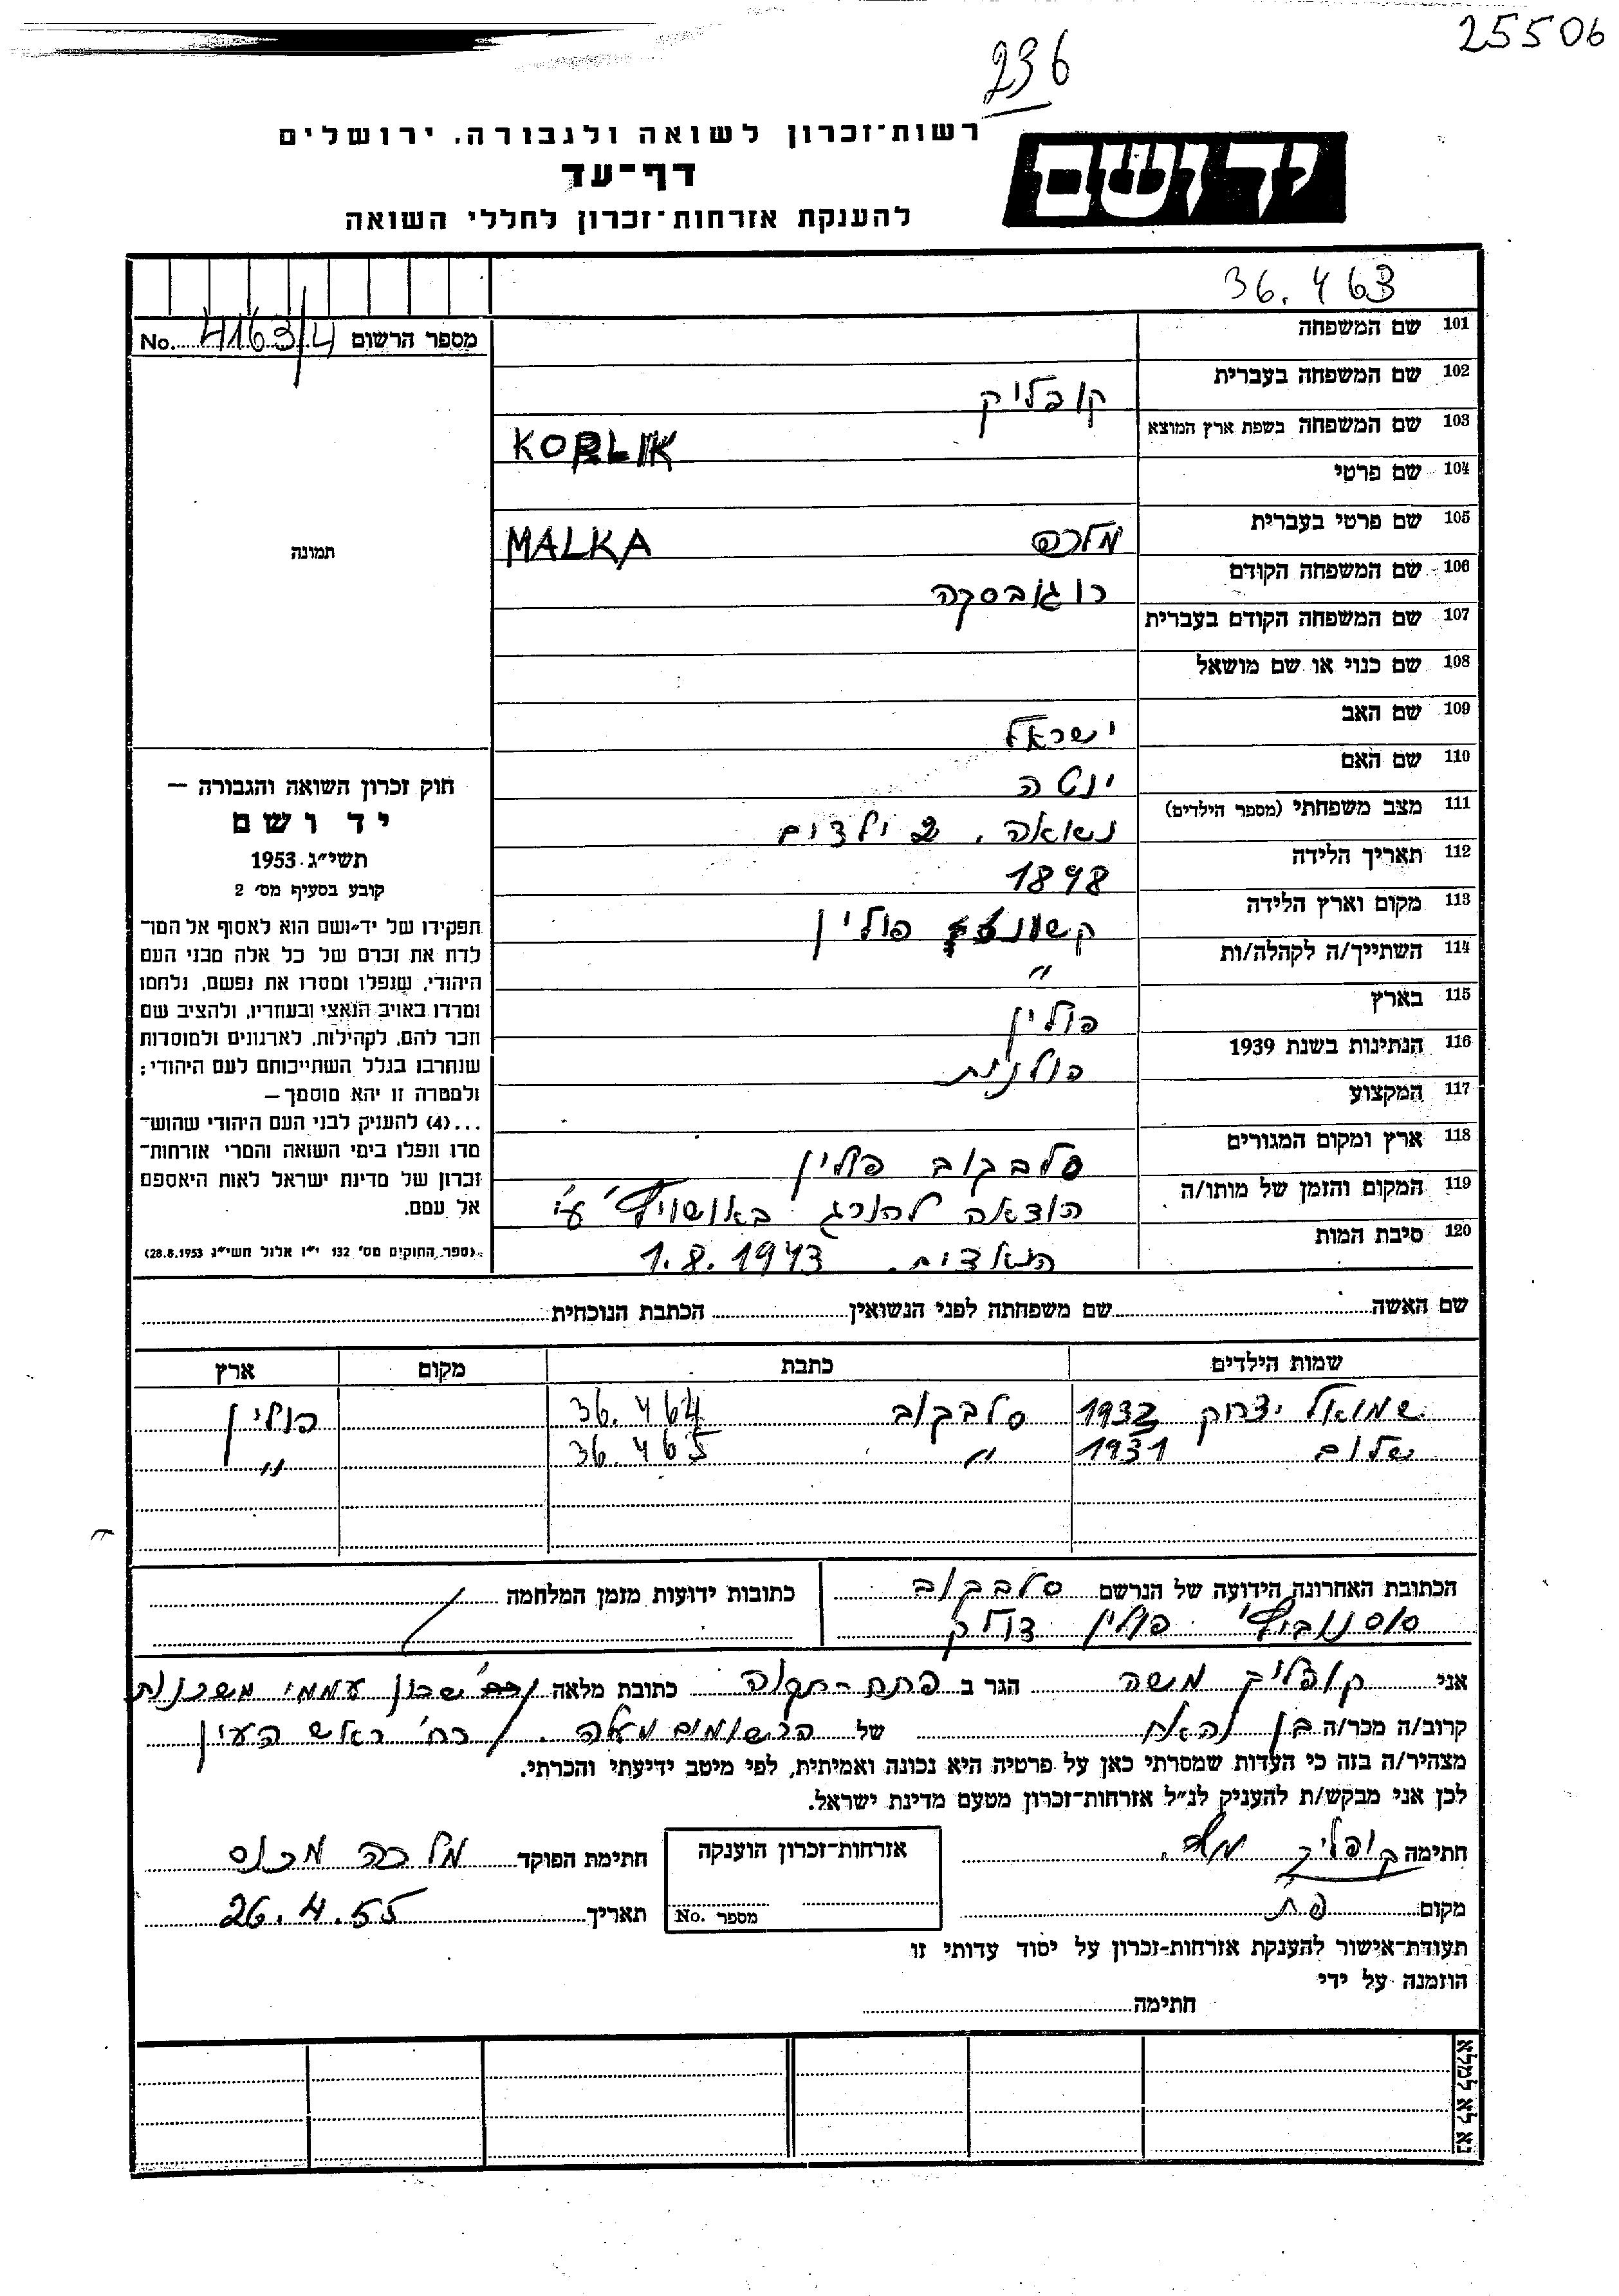 25506
236
רשות-זכרון לשואה ולגבורה, ירושלים
דף-עד
להענקת אזרחות-זכרון לחללי השואה
יד ושם
36.463
מספר הרשום No. 4163/4
תמונה
101 שם המשפחה
102 שם המשפחה בעברית קופליק
103 שם המשפחה בשפת ארץ המוצא
104 שם פרטי
105 שם פרטי בעברית MALKA
106 שם המשפחה הקודם
107 שם המשפחה הקודם בעברית
108 שם כנוי או שם מושאל
109 שם האב ישראל
110 שם האם ינטה
111 מצב משפחתי (מספר הילדים) נשואה, 2 ילדים
112 תאריך הלידה 1898
113 מקום וארץ הלידה פולין
114 השתייך/ה לקהלה/ות "
115 בארץ פולין
116 הנתינות בשנת 1939 פולנית
117 המקצוע
118 ארץ ומקום המגורים סלבקוב פולין
119 המקום והזמן של מותו/ה הוצאה להורג באושויץ ע"י
120 סיבת המות 1.8.1943
חוק זכרון השואה והגבורה —
יד ושם
תשי״ג 1953
קובע בסעיף מס׳ 2
תפקידו של יד-ושם הוא לאסוף אל המו־
לדת את זכרם של כל אלה מבני העם
היהודי, שנפלו ומסרו את נפשם, נלחמו
ומרדו באויב הנאצי ובעוזריו, ולהציב שם
וזכר להם, לקהילות, לארגונים ולמוסדות
שנחרבו בגלל השתייכותם לעם היהודי;
ולמטרה זו יהא מוסמך —
...(4) להעניק לבני העם היהודי שהוש־
מדו ונפלו בימי השואה והמרי אזרחות־
זכרון של מדינת ישראל לאות היאספם
אל עמם.
(ספר החוקים מס׳ 132 י״ז אלול תשי״ג 28.8.1953)
שם האשה שם משפחתה לפני הנשואין הכתבת הנוכחית
שמות הילדים כתבת מקום ארץ
שמואל יצחק סלבקוב 36.464 פולין
שלום 1931 " 36.465 "
הכתובת האחרונה הידועה של הנרשם סלבקוב
פולין
כתובות ידועות מזמן המלחמה
אני קופליק משה הגר ב פתח-תקוה כתובת מלאה שכון עממי משכנות
קרוב/ה מכר/ה בן להאח של הרשומים מעלה. רח׳ ראש העין
מצהיר/ה בזה כי העדות שמסרתי כאן על פרטיה היא נכונה ואמיתית, לפי מיטב ידיעתי והכרתי.
לכן אני מבקש/ת להעניק לנ״ל אזרחות-זכרון מטעם מדינת ישראל.
חתימה קופליק
אזרחות-זכרון הוענקה
חתימת הפוקד מלכה
מקום פת
מספר No.
תאריך 26.4.55
תעודת-אישור להענקת אזרחות-זכרון על יסוד עדותי זו
הוזמנה על ידי
חתימה
נא לא למלא